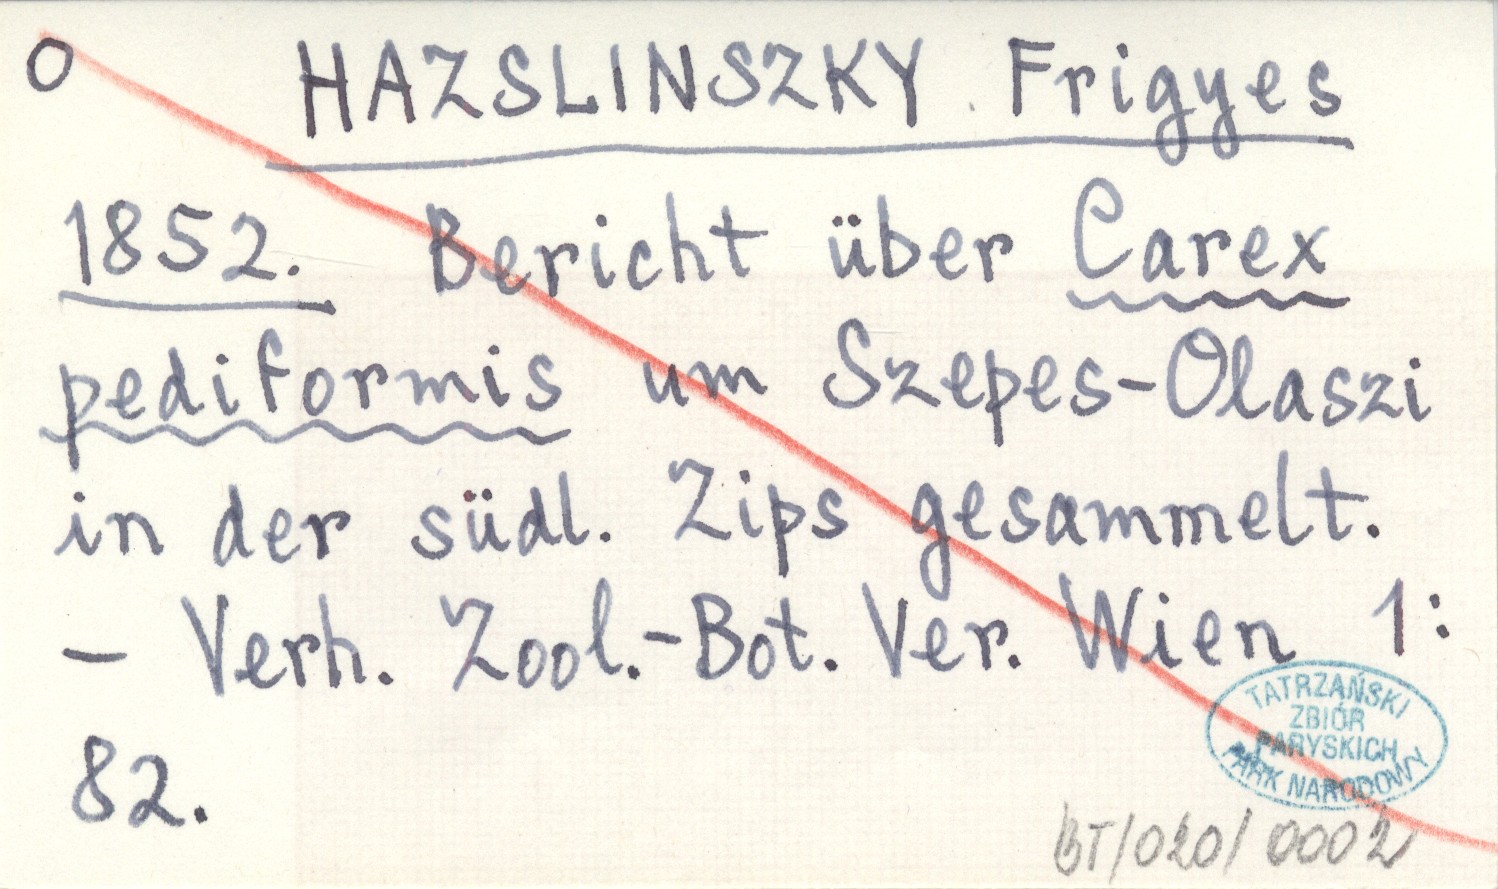 O HAZSLINSZKY Frigyes
1852. Bericht über Carex
pediformis um Szepes-Olaszi
in der südl. Zips gesammelt.
- Verh. Zool.-Bot. Ver. Wien 1:
82.
TATRZAŃSKI
ZBIÓR
PARYSKICH
PARK NARODOWY
BT/020/0002